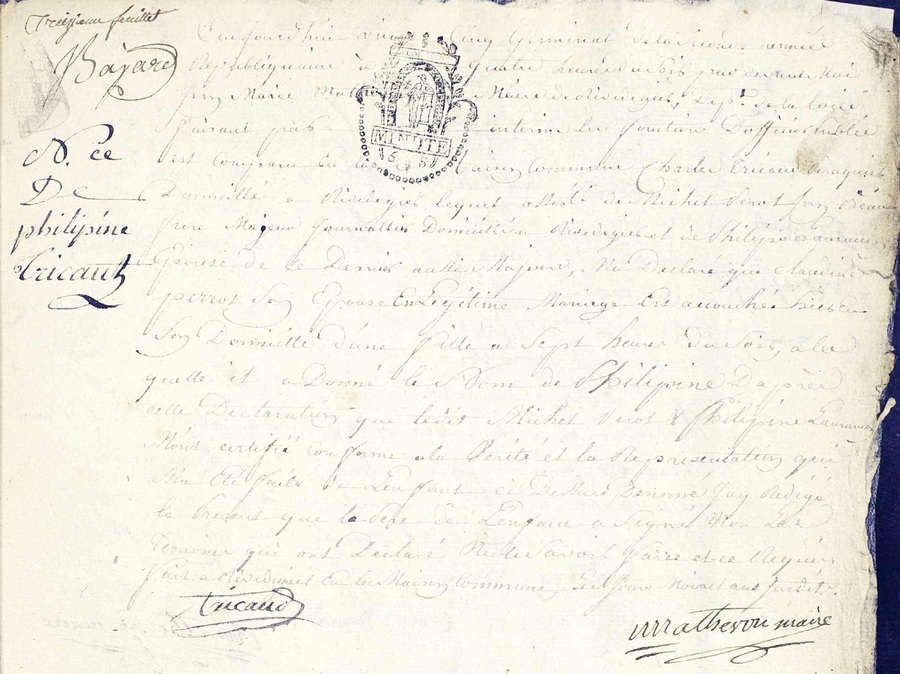 Treizieme feuillet
Bayard
N.ce
De
philipine
tricaut
Cinq Germinal année
Républiquaine à quatre heures par devant Moi
Jean Marie Maire de Rivedegier, Dep.t de la Loire
faisant par interim les fonction D'officier public
Est Comparu En la Maison Commune Charles Tricaud
Domicilié a Rivedegier lequel assisté de Michel Verot Son Beau
frere Majeur Journallier Domicilié a Rivedegier et de Philipine
Epouse de ce Dernier aussi Majeure, Ma Declaré que claudine
perrot Son Epouse En Legitime Mariage Est accouchée hier en
Son Domicille d'une fille a Sept heures du Soir, a la
quelle il a Donné le Nom de Philipine D'après
cette Declaration que ledit Michel Verot & Philipine
Mont certifié Conforme a la Vérité et la Representation qui
Ma Eté faite de L'enfant ci Dessus Denomé Jay Redigé
le Present que le Pere de L'enfant a Signé Non Les
Temoins qui ont Declaré Ne le Savoir faire de ce Requis
fait a Rivedegier En la Maison Commune Les Jour Mois et ans Susdits.
MINUTE
tricaud
Matheron maire